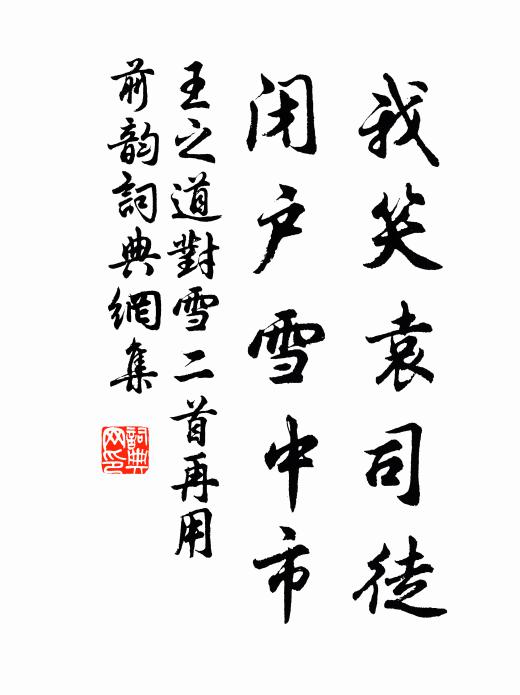 我笑袁司徒
闭户雪中市
王之道對雪二首再用
前韵詞典網集
詞典
网印